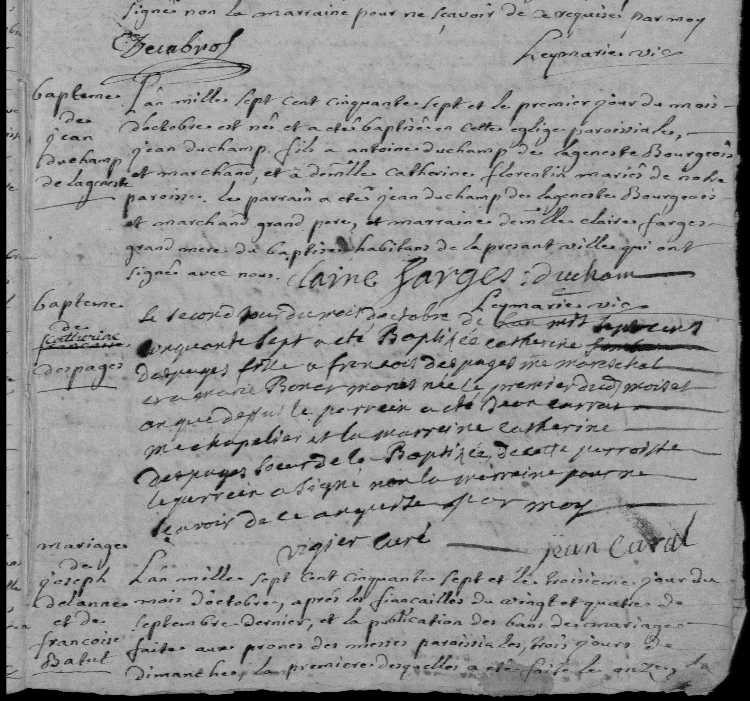 signé non la marraine pour ne sçavoir de ce requise, par moy
Leymarie vic
bapteme
de
jean
duchamp
de lageneste
L'an mille sept cent cinquante sept et le premier jour du mois
d'octobre est né et a eté baptisé en cette eglise paroissiale,
jean duchamp fils a antoine duchamp de lageneste Bourgeois
et marchand, et a demlle Catherine florentin mariés de notre
paroisse. le parrain a eté jean duchamp de lageneste Bourgeois
et marchand grand pere, et marraine demlle claire farges
grand mere du baptisé habitans de la presant ville qui ont
signé avec nous. Claire Farges : ducham
Leymarie vic
bapteme
de
Catherine
despages
Le second jour du mois d'octobre de l'an mil sept cens
cinquante sept a eté Baptisée catherine
despages fille a francois despages me mareschal
et a marie Bonet mariés née le premier dud mois et
an que dessus le parrein a eté Jean Carrat
me chapelier et la marreine catherine
despages soeur de la Baptisée, de cette parroisse
le parrein a signé non la marreine pour ne
sçavoir de ce enquise par moy
vigier curé jean Caral
mariage
de
joseph
delanne
et de
francoise
Batut
L'an mille sept cent cinquante sept et le troisieme jour du
mois d'octobre, après les fiancailles du vingt et quatre de
septembre dernier, et la publication des bans de mariage
faite aux prones des messes paroissiales, trois jours de
dimanche, la premiere desquelles a eté faite le onze